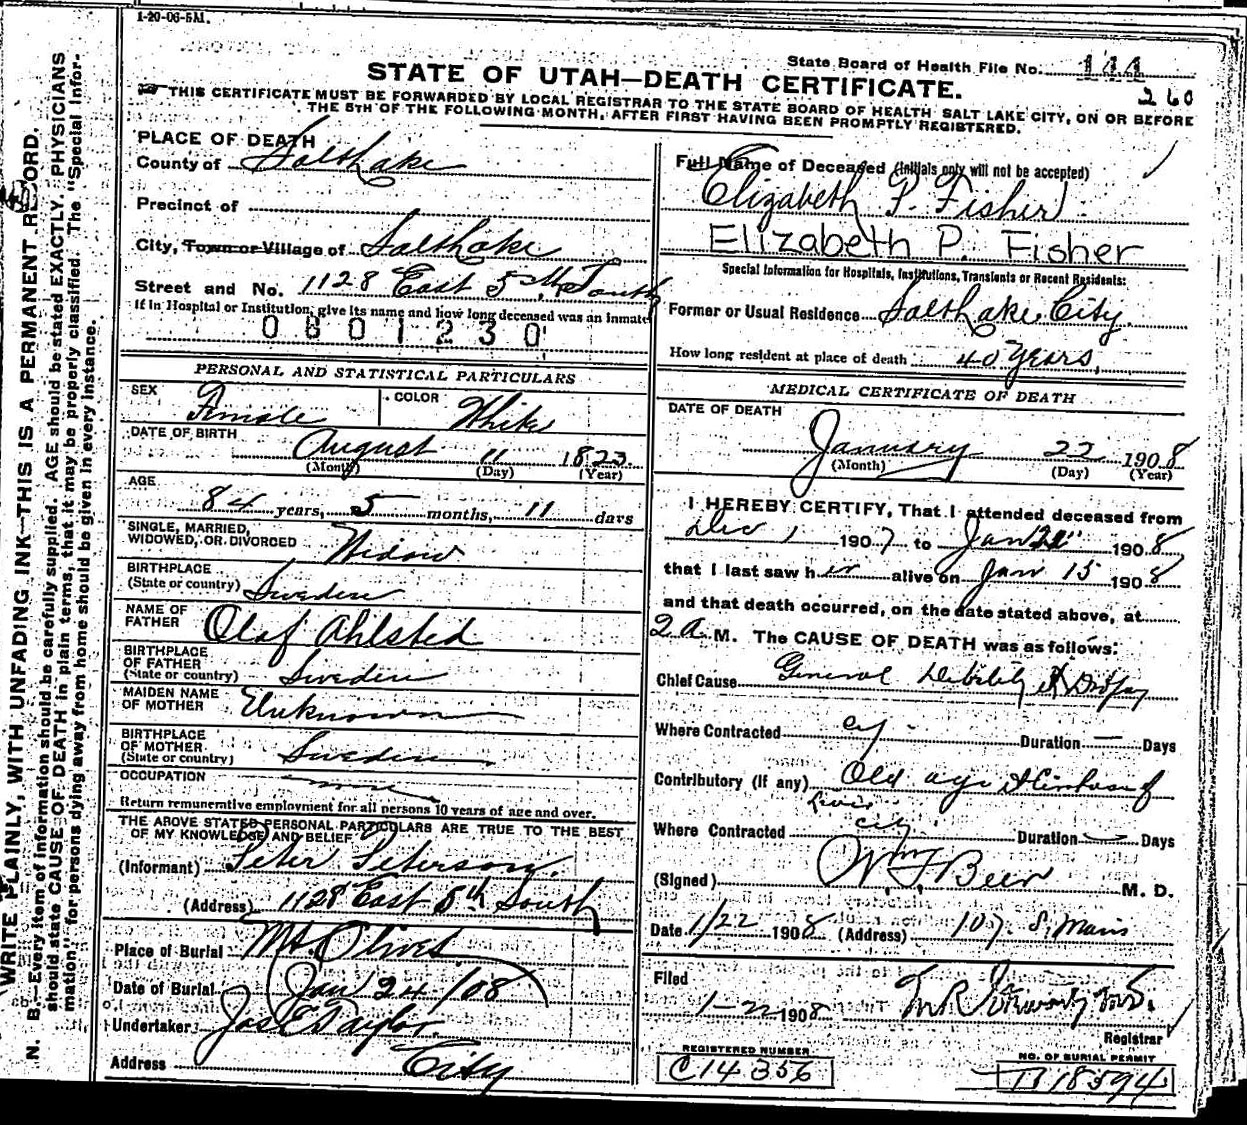 1-20-06-5M.
State Board of Health File No. 144
260
STATE OF UTAH—DEATH CERTIFICATE.
THIS CERTIFICATE MUST BE FORWARDED BY LOCAL REGISTRAR TO THE STATE BOARD OF HEALTH SALT LAKE CITY, ON OR BEFORE
THE 5TH OF THE FOLLOWING MONTH, AFTER FIRST HAVING BEEN PROMPTLY REGISTERED.
WRITE PLAINLY, WITH UNFADING INK—THIS IS A PERMANENT RECORD.
N. B.—Every item of information should be carefully supplied. AGE should be stated EXACTLY. PHYSICIANS
should state CAUSE OF DEATH in plain terms, that it may be properly classified. The "Special Infor-
mation" for persons dying away from home should be given in every instance.
PLACE OF DEATH
County of Salt Lake
Precinct of
City, Town or Village of Salt Lake
Street and No. 1128 East 5th South
If in Hospital or Institution, give its name and how long deceased was an inmate
0801230
PERSONAL AND STATISTICAL PARTICULARS
SEX Female COLOR White
DATE OF BIRTH August 11 1823
(Month) (Day) (Year)
AGE 84 years, 5 months, 11 days
SINGLE, MARRIED,
WIDOWED, OR DIVORCED Widow
BIRTHPLACE
(State or country) Sweden
NAME OF
FATHER Olof Ahlsted
BIRTHPLACE
OF FATHER
(State or country) Sweden
MAIDEN NAME
OF MOTHER Unknown
BIRTHPLACE
OF MOTHER
(State or country) Sweden
OCCUPATION
Return remunerative employment for all persons 10 years of age and over.
THE ABOVE STATED PERSONAL PARTICULARS ARE TRUE TO THE BEST
OF MY KNOWLEDGE AND BELIEF
(Informant) Peter Peterson.
(Address) 1128 East 5th South
Place of Burial Mt. Olivet
Date of Burial Jan 24/08
Undertaker Jos E Taylor.
Address City
Full Name of Deceased (Initials only will not be accepted)
Elizabeth P. Fisher
Elizabeth P. Fisher
Special Information for Hospitals, Institutions, Transients or Recent Residents:
Former or Usual Residence Salt Lake City.
How long resident at place of death 40 Years,
MEDICAL CERTIFICATE OF DEATH
DATE OF DEATH
January 22 1908
(Month) (Day) (Year)
I HEREBY CERTIFY, That I attended deceased from
Dec 1 1907 to Jan 22 1908
that I last saw her alive on Jan 15 1908
and that death occurred, on the date stated above, at
2 a. M. The CAUSE OF DEATH was as follows:
Chief Cause General Debility & Dropsy
Where Contracted City - Duration — Days
Contributory (If any) Old age & Cirrhosis of
Liver
Where Contracted city Duration — Days
(Signed) Wm F Beer M. D.
Date 1/22 1908 (Address) 107 S. Main
Filed
1-22 1908
Registrar
REGISTERED NUMBER
C14356
NO. OF BURIAL PERMIT
B18594